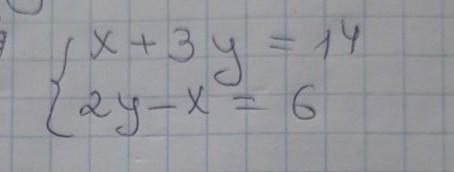 x + 3y = 14
2y - x = 6